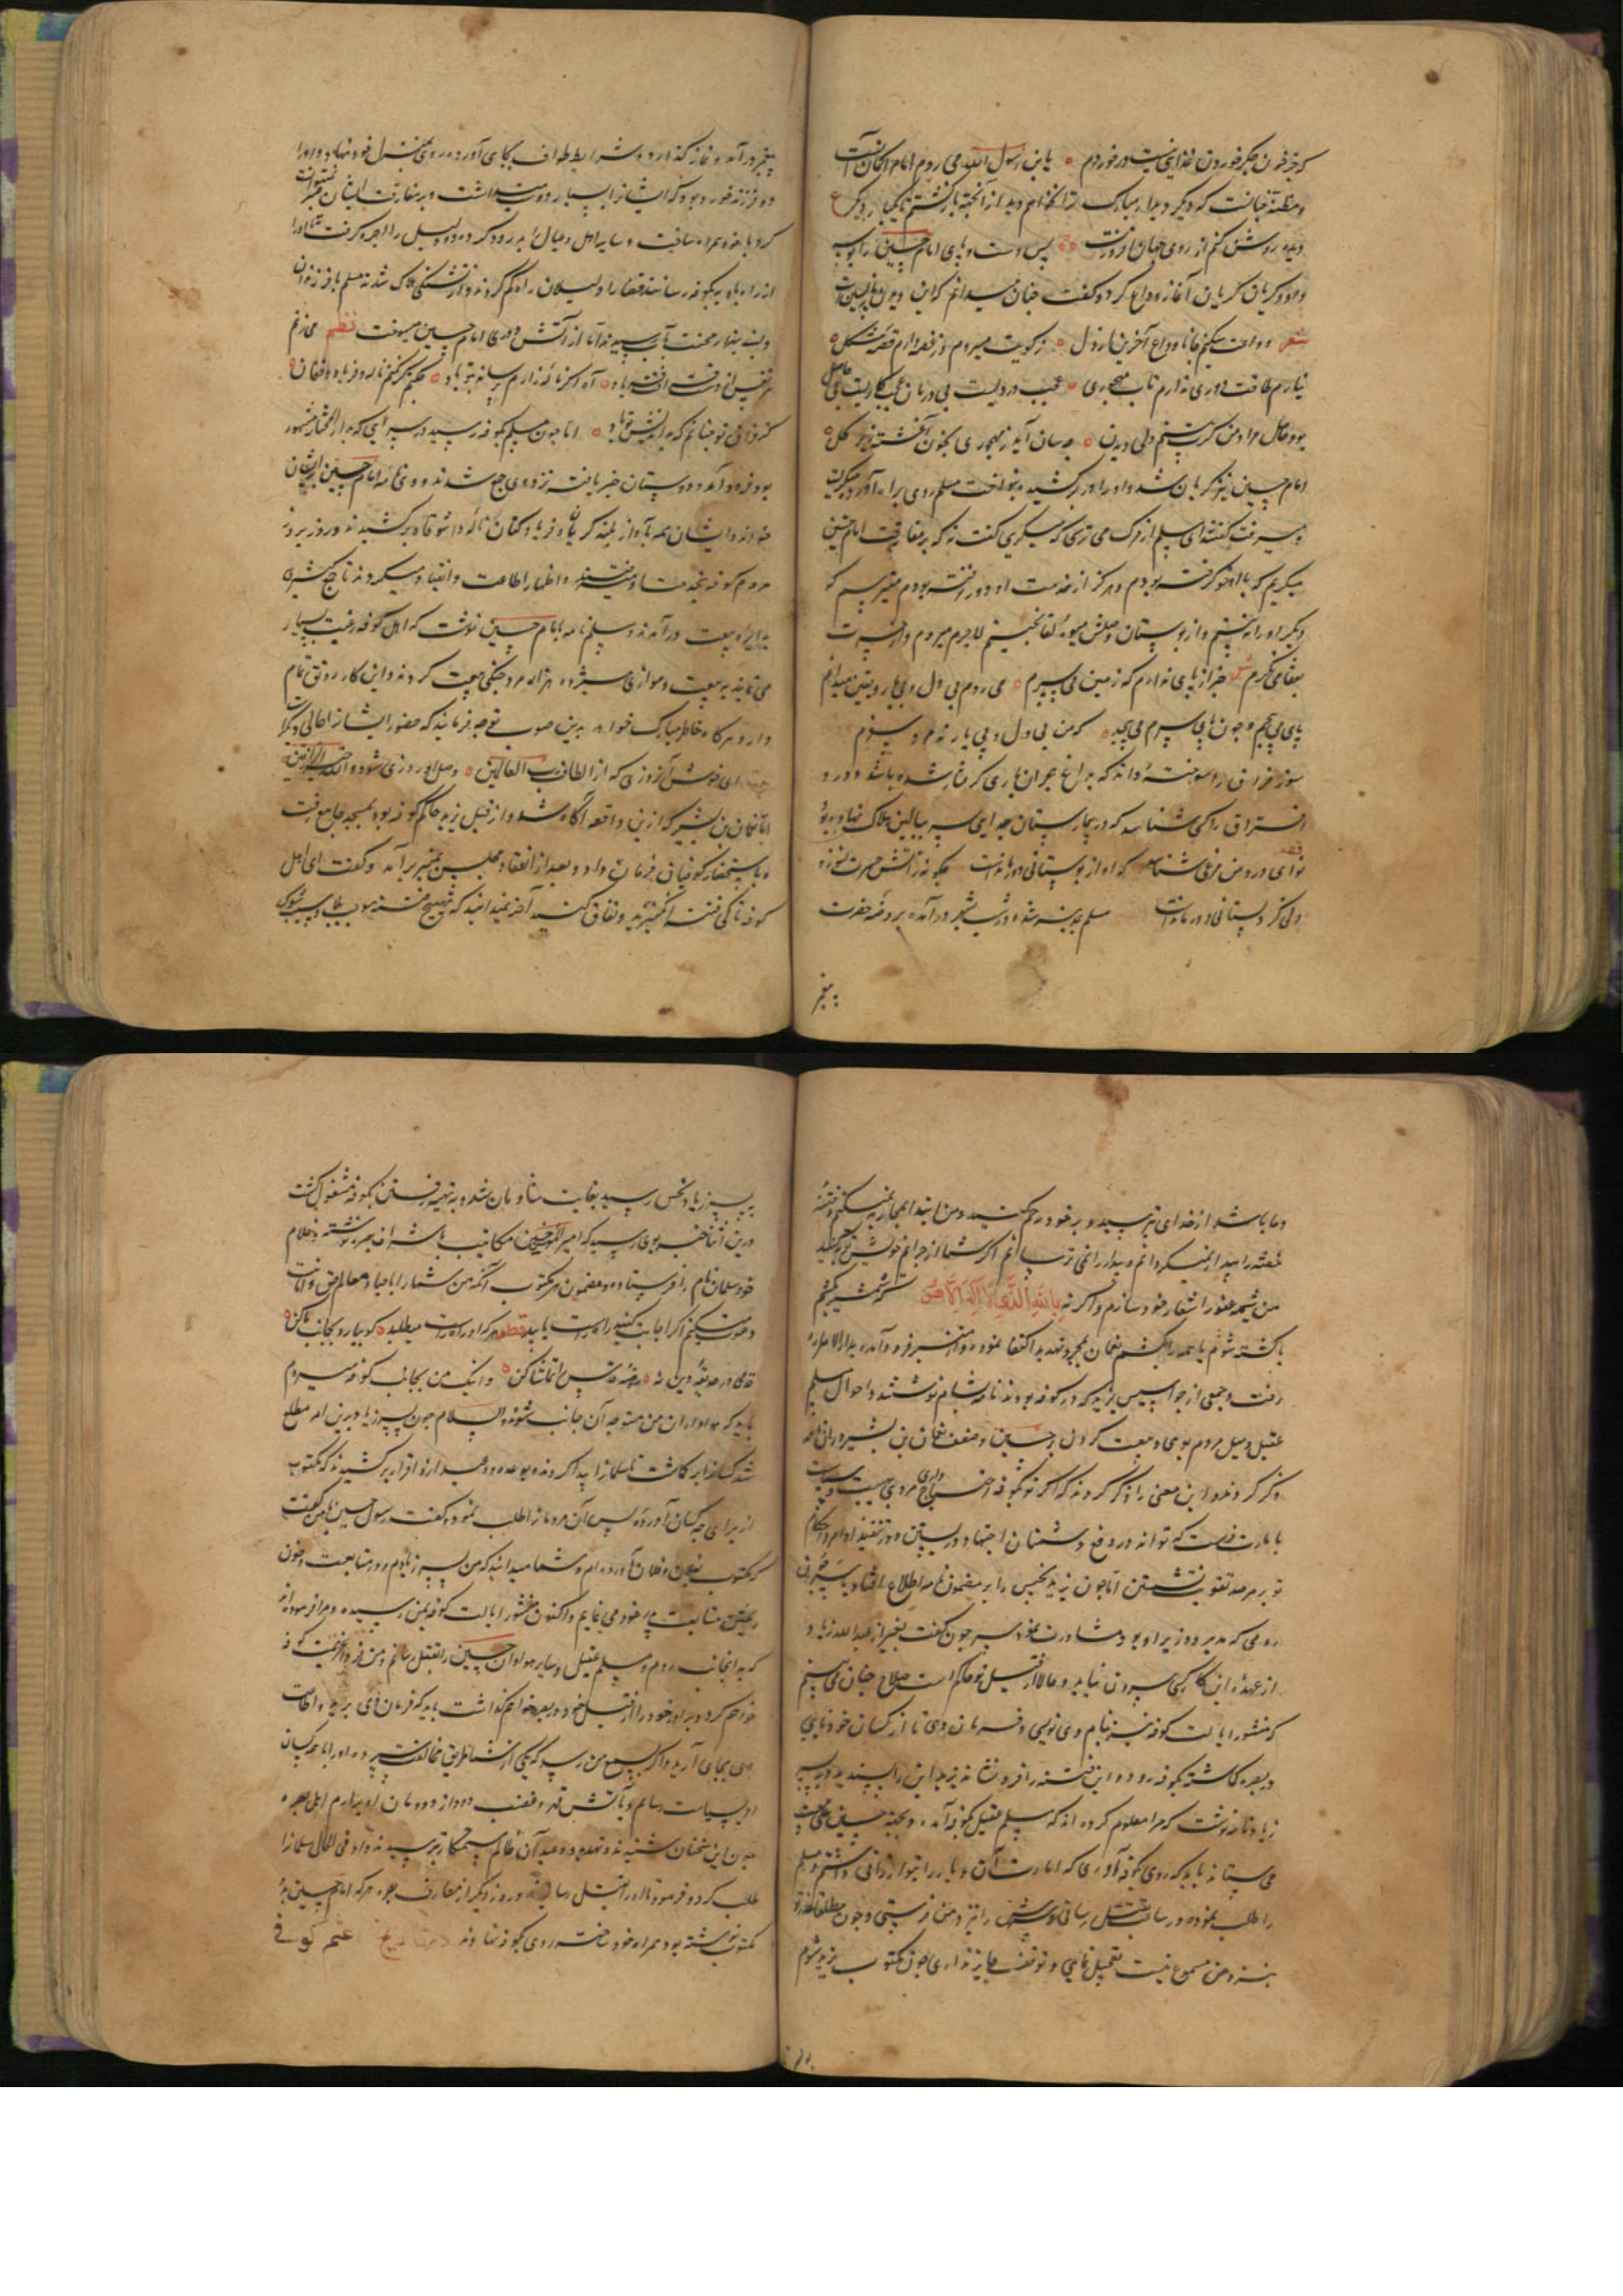 که جز خون جگر خوردن غذایی نیست در خوردم ه یا ابن رسول الله می روم اما امکان آنست
و مظنه چنانست که دیگر دیدار مبارک ترا نخواهم دید از آنجهة بازگشتم تا یکبار دیگر ع
دیده روشن کنم از روی جهان افروزت ه ه پس دست و پای امام حسین را بوسه
داد و گریان گریان آغاز وداع کرد و گفت چنان میدانم که این دیدار باز پسین است
شعر وداعت میکنم جانا وداع آخرین از دل ه ز کویت میروم وز غصه دارم قصه مشکل ه
ندارم طاقت دوری ندارم تاب مهجوری ه عجب دردیست بی درمان عجب کاریست بی حاصل
بود حاصل مراد من گرت بینم ولی دیدن ه چه سان آید ز مهجوری بخون آغشته زیر گل ه
امام حسین نیز گریان شد و او را در بر کشیده بنواخت مسلم روی براه آورد و میگریست
و میرفت گفتند ای مسلم از مرگ می ترسی که میگریی گفت نه که بر مفارقت امام حسین
میگریم که با او خو گرفته بودم و هرگز از خدمت او دور نرفته بودم میترسم که
دیگر او را نه بینم و از بوستان وصلش میوه لقا نچینم لاجرم میروم و از حسرت
بقفا می نگرم شعر خبر از پای ندارم که زمین می سپرم ه می روم بی دل و بی یار و یقین میدانم
پای می پیچم و چون پای سرم می پیچد ه که من بی دل و بی یار نه مرد سفرم
سوز فراق را سوخته داند که بداغ هجران یاری گرفتار شده باشد و درد
افتراق را کسی شناسد که در بیمارستان جدایی سر ببالین هلاک نهاده بود
نوای درد من مرغی شناسد که او از بوستانی دور ماندست چگونه ز آتش حسرت نسوزد
ولی کز دلستانی دور ماندست مسلم بمدینه شد و در شب بشهر درآمده بروضه حضرت
پیغمبر
پیغمبر درآمد و نماز گذارد و شرایط طواف بجای آورد و روی بمنزل خود نهاد و او را
دو فرزند خورد بود که ایشانرا بسیار دوست میداشت و بر مفارقت ایشان صبر نمیتوانست
کرد با خود همراه ساخت و سایر اهل و عیال را بدرود کرد و دو دلیل را اجره گرفت تا او را
از راه بادیه بکوفه رسانند قضا را دلیلان راه گم کردند و از تشنگی هلاک شدند مسلم با فرزندان
و بسی محنت بآب رسید اما از آتش دوری امام حسین میسوخت نظم می زنم
هر نفس از دست فراقت فریاد ه آه اگر ناله زارم نرساند بتو باد ه چکنم گر نکنم ناله و فریاد و فغان ه
کز فراق تو چنانم که بداندیش تو باد ه اما چون مسلم بکوفه رسید در سرایی که بدار المختار مشهور
بود فرود آمد و دوستان خبر یافته نزد وی جمع شدند و وی نامه امام حسین را بر ایشان
خواند و ایشان همه بآواز بلند گریان و فریاد کنان ناله و اشوقاه برکشیدند و روز بروز
مردم کوفه بخدمت او میرفتند و اظهار اطاعت و انقیاد میکردند تا جمع کثیری
بدایره بیعت درآمدند و مسلم نامه بامام حسین نوشت که اهل کوفه رغبت بسیار
می نمایند به بیعت و موازی هیژده هزار مرد جنگی بیعت کردند و این کار رونق تمام
دارد هرگاه خاطر مبارک خواهد بدین صوب توجه فرمایند که حضور ایشان از اعالی
ای خوش آنروزی که از الطاف رب العالمین ه وصل او روزی شود
اما نعمان بن بشیر که ازین واقعه آگاه شد و از قبل یزید حاکم کوفه بود بمسجد جامع رفت
و باستحضار کوفیان فرمان داد و بعد از انعقاد مجلس بمنبر برآمد و گفت ای اهل
کوفه تا کی فتنه انگیزید و نفاق کنید آخر نمیدانید که تهییج فتنه موجب
دعا باشد از خدای بترسید و بر خود رحم کنید و من ابتدا بمحاربه نمیکنم و فتنه
خفته را بیدار نمیگردانم و بیدار را نمی ترسانم اگر شما از جرایم خویش توبه کنید
من شیمه عفو را شعار خود سازم و اگر نه بالله الذی لا اله الا هو که شمشیر بکشم
یا کشته شوم یا همه را بکشم نعمان بمجرد تهدید اکتفا نموده و از منبر فرود آمده بدار الاماره
رفت و جمعی از جواسیس یزید که در کوفه بودند نامه بشام نوشتند و احوال مسلم
عقیل و میل مردم بوی و بیعت کردن بر حسین و ضعف نعمان بن بشیر در آن نامه
ذکر کردند و این معنی را ذکر کردند که اگر تو بکوفه احتیاج داری مردی بهیبت و سیاست
با مارت فرست که تواند در دفع دشمنان اجتهاد در بستن و در تنفیذ اوامر و احکام
تو بر مرصد تقویت نشستن اما چون یزید نحس را بر مضمون نامه اطلاع افتاد با سرجون
رومی که مدبر و وزیر او بود مشاورت نمود سرجون گفت بغیر از عبد الله زیاد
از عهده این کار کسی بیرون نیاید و حالا از قبل تو حاکم است صلاح چنان می بینم
که منشور ایالت کوفه نیز بنام وی نویسی و فرمان دهی تا از کسان خود نایبی
در بصره گماشته بکوفه رود و این فتنه را فرو نشاند یزید این را پسندید و بپسر
زیاد نامه نوشت که مرا معلوم کرده اند که مسلم عقیل بکوفه آمده و بجهت حسین علی بیعت
می ستاند باید که روی بکوفه آوری که امارت آن دیار را بتو ارزانی داشتم و مسلم
را طلب نموده در ساعت بقتل رسانی و سرش را نزد من فرستی و چون مطلقا عذر تو
بنزد من مسموع نیست تعجیل نمایی و توقف جایز نداری چون مکتوب یزید شوم
به پسر زیاد نحس رسید بغایت شادمان شد و به تهیه رفتن بکوفه مشغول گشت
درین اثنا خبر بوی رسید که امیر المؤمنین حسین مکاتیب باشراف بصره نوشته و غلام
خود سلمان نام را فرستاده و مضمون هر مکتوب آنکه من شما را باحیاء معالم حق و اماتت
دعوت میکنم اگر اجابت کنید راه راست یابید قطعه هر که او راه راست میطلبد ه گو بیا رو بجانب ما کن ه
قدمی در حدیقه دین نه ه روضه قدس را تماشا کن ه و اینک من بجانب کوفه میروم
باید که هواداران من متوجه آن جانب شوند والسلام چون پسر زیاد برین امر مطلع
شد کسانرا بر گماشت تا سلمانرا پیدا کردند و بوعده و وعید از او اقرار برکشیدند که مکتوب
از برای چه کسان آورده پس آن مردمانرا طلب نمود و گفت رسول حسین بمن گفت
که مکتوب بفلان و فلان آورده ام و شما میدانید که من پسر زیادم و در متابعت و خون
ریختن متابعت پدر خود می نمایم و اکنون منشور ایالت کوفه بمن رسیده و مرا فرموده اند
که بدانجانب روم و مسلم عقیل و سایر هواداران حسین را بقتل رسانم و من فردا عزیمت کوفه
خواهم کرد و برادر خود را از قبل خود در بصره خواهم گذاشت باید که فرمان وی برید و اطاعت
وی بجای آرید و اگر بسمع من رسد که یکی از شما طریق مخالفت سپرده او را با همه کسان
او بسیاست رسانم و بآتش قهر و غضب دود از دودمان او برآرم اهل بصره
چون این سخنان شنیدند و تهدید و وعید آن ظالم ستمکار بترسیدند و او فی الحال سلمانرا
طلب کرد و فرمود تا او را بقتل رسانیدند و روز دیگر از معارف بصره هر که امام حسین بدو
مکتوب نوشته بود همراه خود ساخت و روی بکوفه نهادند در تاریخ اعثم کوفی